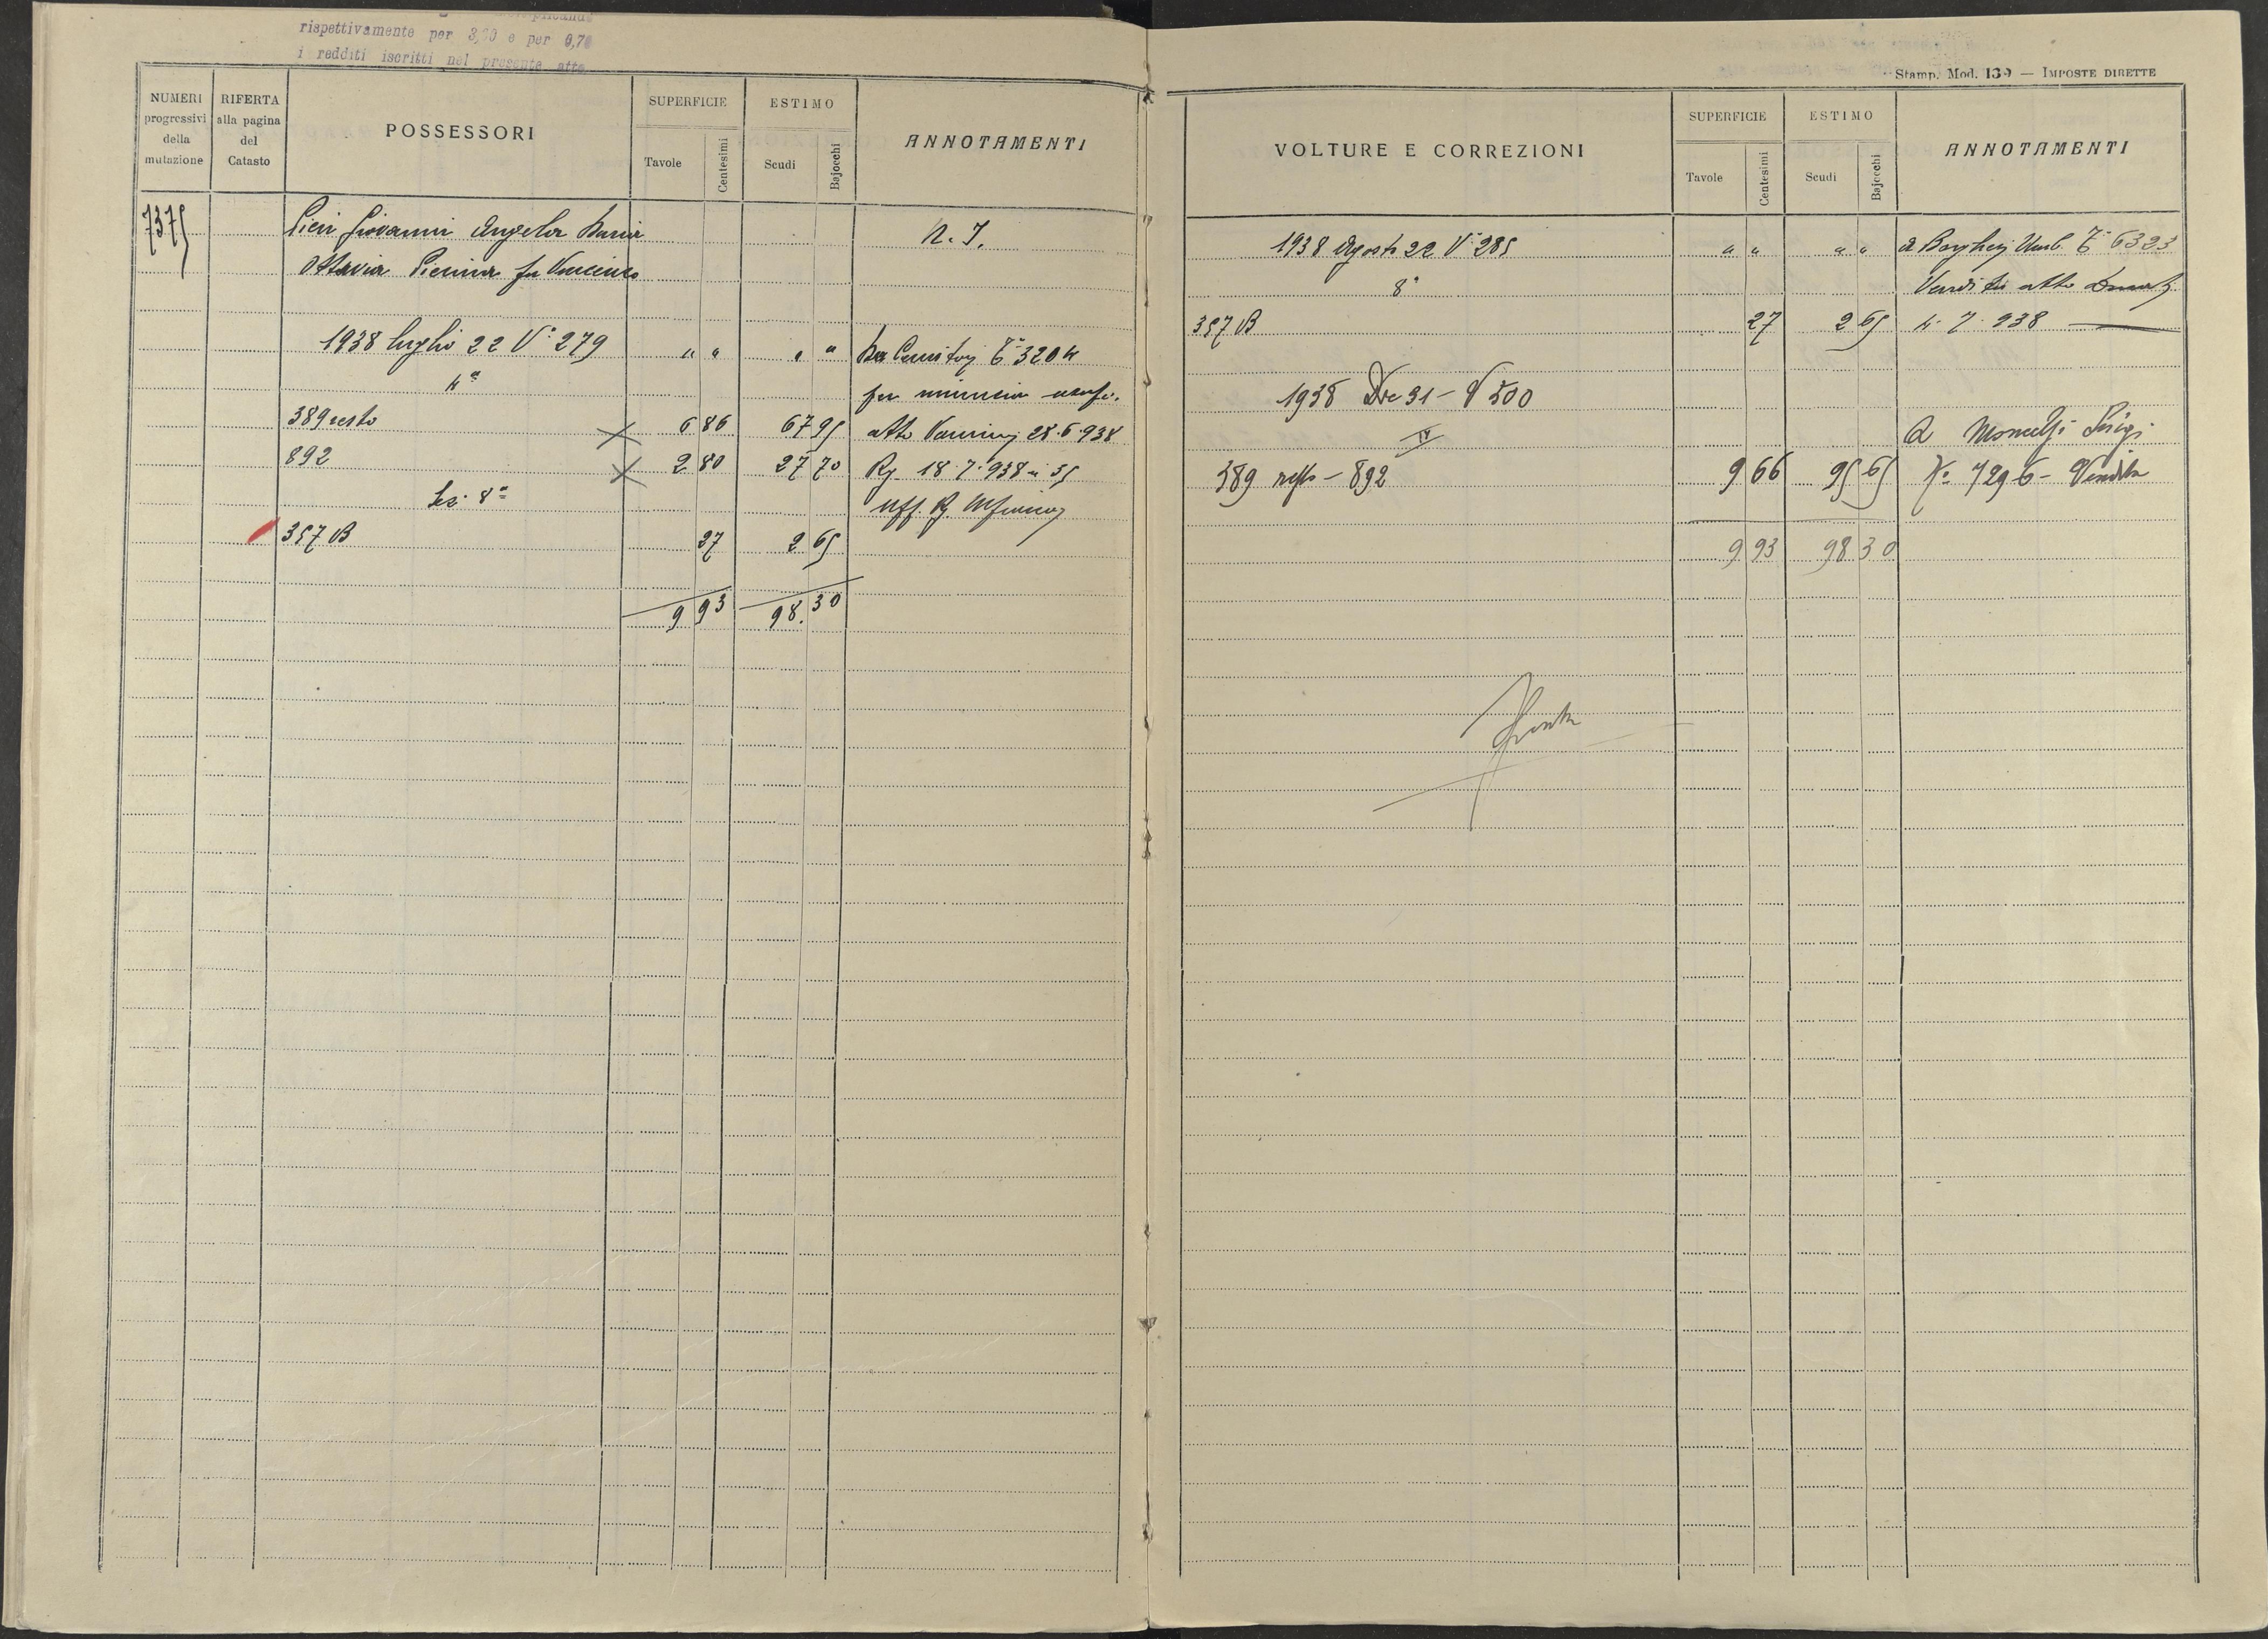 rispettivamente per 3,20 e per 0,70
i redditi iscritti nel presente atto
NUMERI progressivi della mutazione
RIFERTA alla pagina del Catasto
POSSESSORI
SUPERFICIE
Tavole
Centesimi
ESTIMO
Scudi
Bajocchi
ANNOTAMENTI
7375
Pieri Giovanni Angela Maria
N. I.
Ottavia Pierina fu Vincenzo
1938 luglio 22 V° 279 " " " " 3204
4ª
per rinuncia usuf.
389 resto 6 86 67 95 atto 28.6.938
892 2 80 27 70 Rg 18.7.938 n 35
Sez. 8ª
Uff. Rg
357 B 27 2 65
9 93 98.30
Stamp. Mod. 139 — IMPOSTE DIRETTE
VOLTURE E CORREZIONI
SUPERFICIE
Tavole
Centesimi
ESTIMO
Scudi
Bajocchi
ANNOTAMENTI
1938 Agosto 22 V° 285 " " " " a Umb. 6323
8ª
Vendita atto
357 B 27 2 65 4.7.938
1938 Dre 31 - V 500
IV
a Luigi
389 resto - 892 9 66 95 65 7296 - Vendita
9 93 98 30